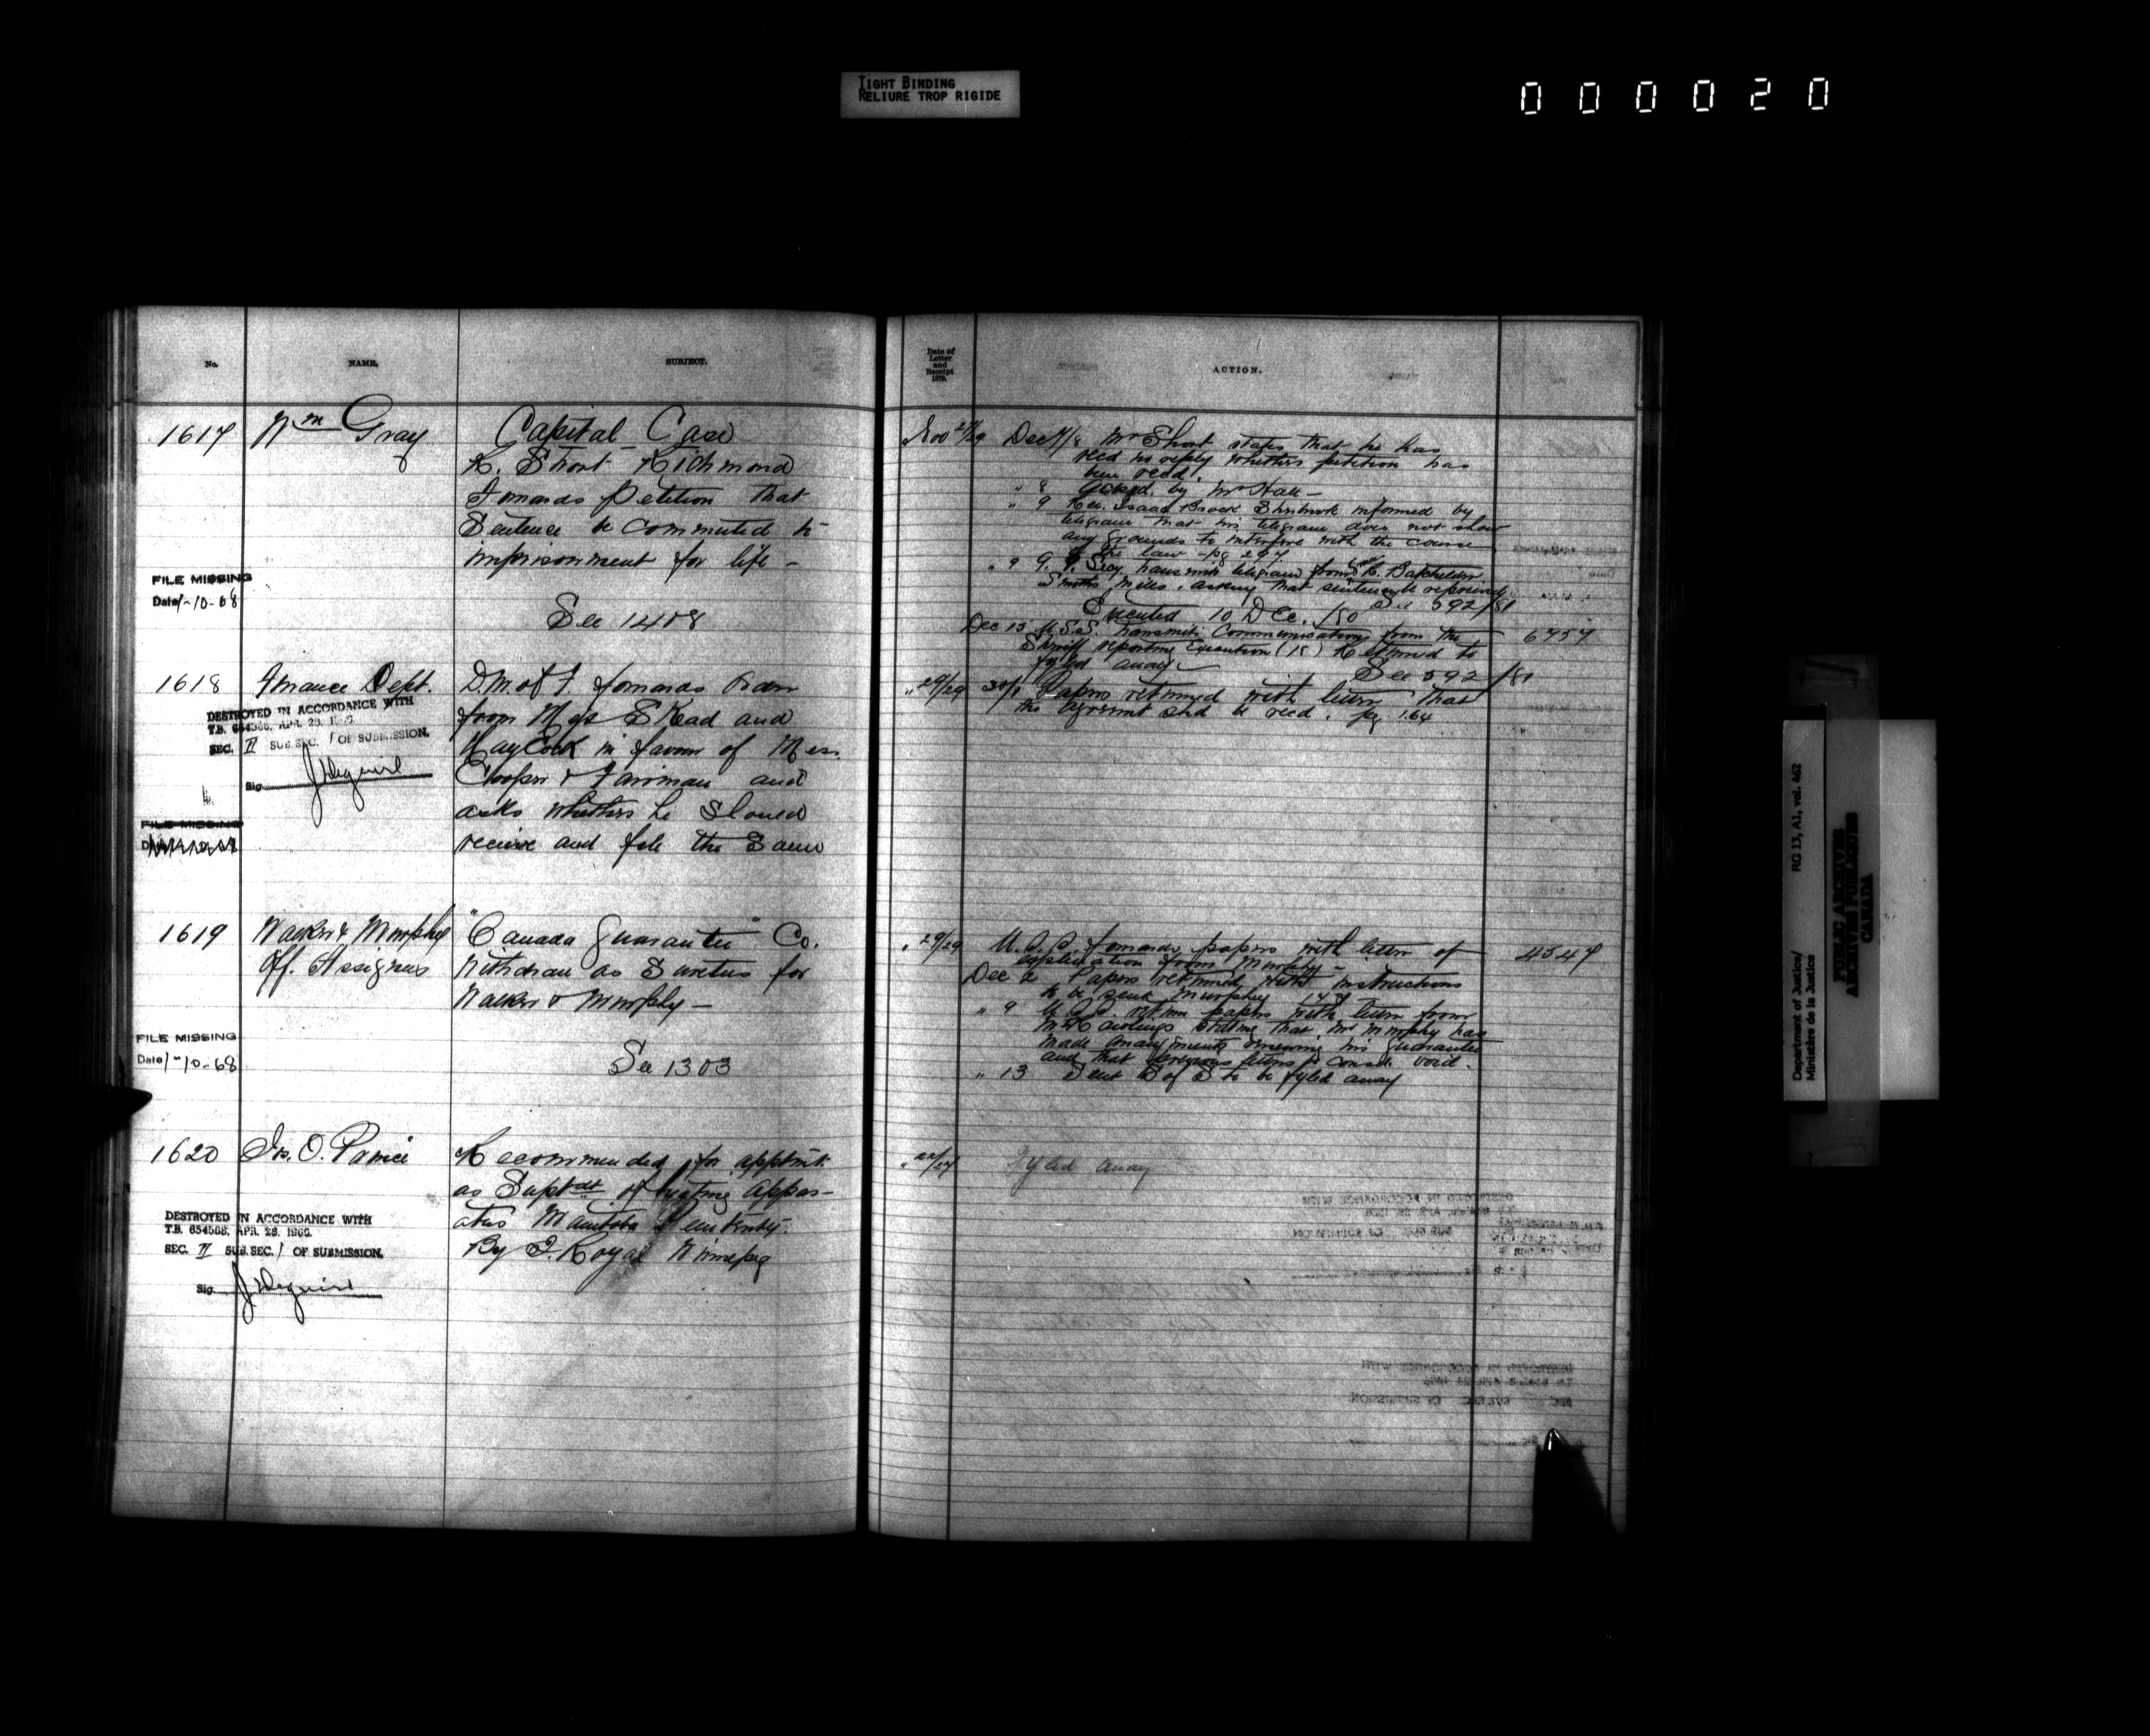 TIGHT BINDING
RELIURE TROP RIGIDE
000020
No.
NAME.
SUBJECT.
Date of
Letter
and
Receipt
1879.
ACTION.
1617
Wm Gray
Capital Case
R. Short Richmond
Forwards Petition that
Sentence be commuted to
imprisonment for life -
See 1408
FILE MISSING
Date 1-10-68
Nov 27/29
Dec 7/8 Mr Short states that he has
recd no reply whether petition has
been recd.
" 8 Ackgd. by Mr
" 9 Rev. Isaac Brock informed by
telegram that his telegram does not show
any grounds to interfere with the course
of the law - pg 297
" 9 G. G. Secy. transmits telegram from R.
Smiths Mills. asking that sentence be
See 592/81
Executed 10 Dec. /80
Dec 15 U.S.S. transmits Communications from the
Sheriff reporting Execution (15) Returned to
be fyled away
See 592/81
6757
1618
Finance Dept.
D.M. of F. forwards
from Mess Skead and
Haycock in favour of Mess.
Cooper & Fairman and
asks whether he should
receive and file the same
DESTROYED IN ACCORDANCE WITH
T.B. 654588, APR. 28, 1966.
SEC. II SUB.SEC. 1 OF SUBMISSION.
Sig.
FILE MISSING
" 29/29
30/1 Papers returned with letter that
the agreemt shd be recd. pg 164
1619
Walker & Murphy
Off. Assignees
"Canada Guarantee" Co.
Withdraw as Sureties for
Walker & Murphy -
See 1303
FILE MISSING
Date 1-10-68
" 29/29
U.S.S. forwards papers with letter of
application from Murphy -
Dec 2 Papers returned with instructions
to be sent Murphy
" 9 U.S.S. return papers with letter from
Mr Rawlings stating that Mr Murphy has
made arrangments renewing his guarantee
and that previous letter is void.
" 13 Sent S of S to be fyled away
4547
1620
Js. O. Prince
Recommended for apptmt.
as Suptdt of heating appar-
atus Manitoba Penitenty.
By J. Royal Winnipeg
DESTROYED IN ACCORDANCE WITH
T.B. 654588, APR. 28, 1966.
SEC. II SUB.SEC. 1 OF SUBMISSION.
Sig.
Fyled away
Department of Justice/
Ministère de la Justice
RG 13, A1, vol. 462
PUBLIC ARCHIVES
ARCHIVES PUBLIQUES
CANADA